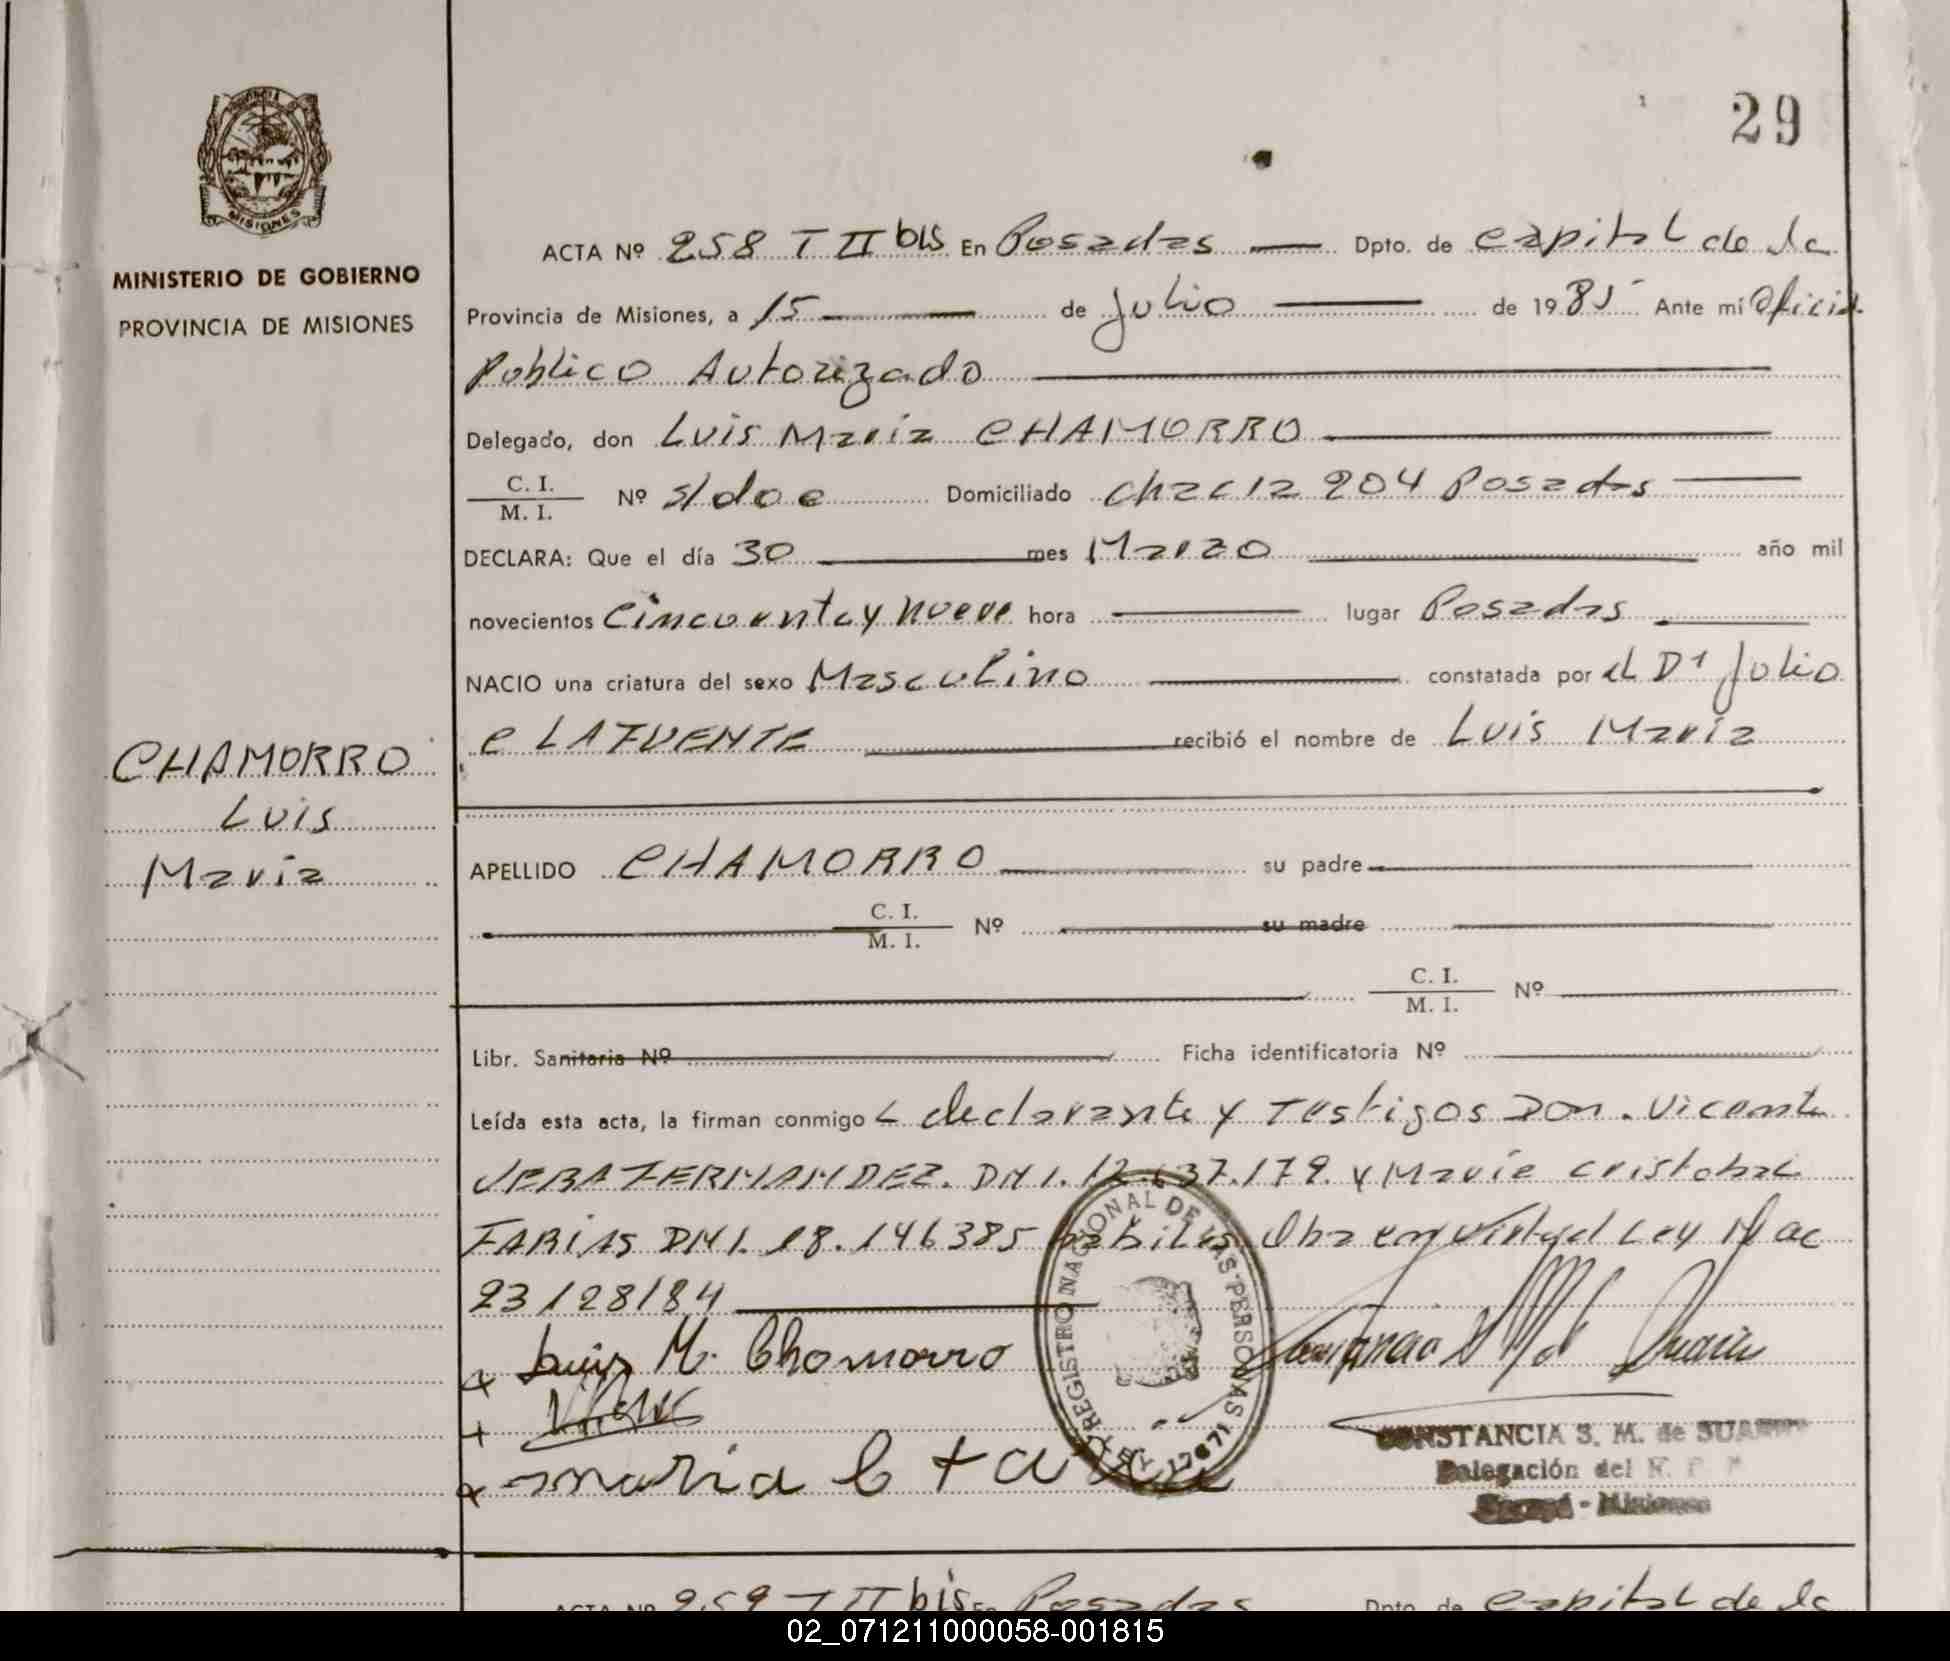 29
MISIONES
MINISTERIO DE GOBIERNO
PROVINCIA DE MISIONES
ACTA Nº 258 T II bis En Posadas Dpto. de capital de la
Provincia de Misiones, a 15 de Julio de 1985 Ante mí Oficial
Público Autorizado
Delegado, don Luis Maria CHAMORRO
C. I.
M. I. Nº s/doc Domiciliado chacra 204 Posadas
DECLARA: Que el día 30 mes Marzo año mil
novecientos Cincuenta y nueve hora lugar Posadas
NACIO una criatura del sexo Masculino constatada por el Dr Julio
C LAFUENTE recibió el nombre de Luis Maria
CHAMORRO
Luis
Maria
APELLIDO CHAMORRO su padre
C. I.
M. I. Nº su madre
C. I.
M. I. Nº
Libr. Sanitaria Nº Ficha identificatoria Nº
Leída esta acta, la firman conmigo declarante y Testigos Don. Vicente
VERA FERNANDEZ. DNI. 12.637.179. y Maria cristobal
FARIAS DNI. 18.146385 hábiles Obra en virtud Ley Nac
23128/84
Luis M. Chamorro
maria C Faria
REGISTRO NACIONAL DE LAS PERSONAS
LEY 17671
CONSTANCIA S. M. de SUAREZ
Delegación del R. P.
Misiones
ACTA Nº 259 T II bis En Posadas Dpto. de capital de la
02_071211000058-001815